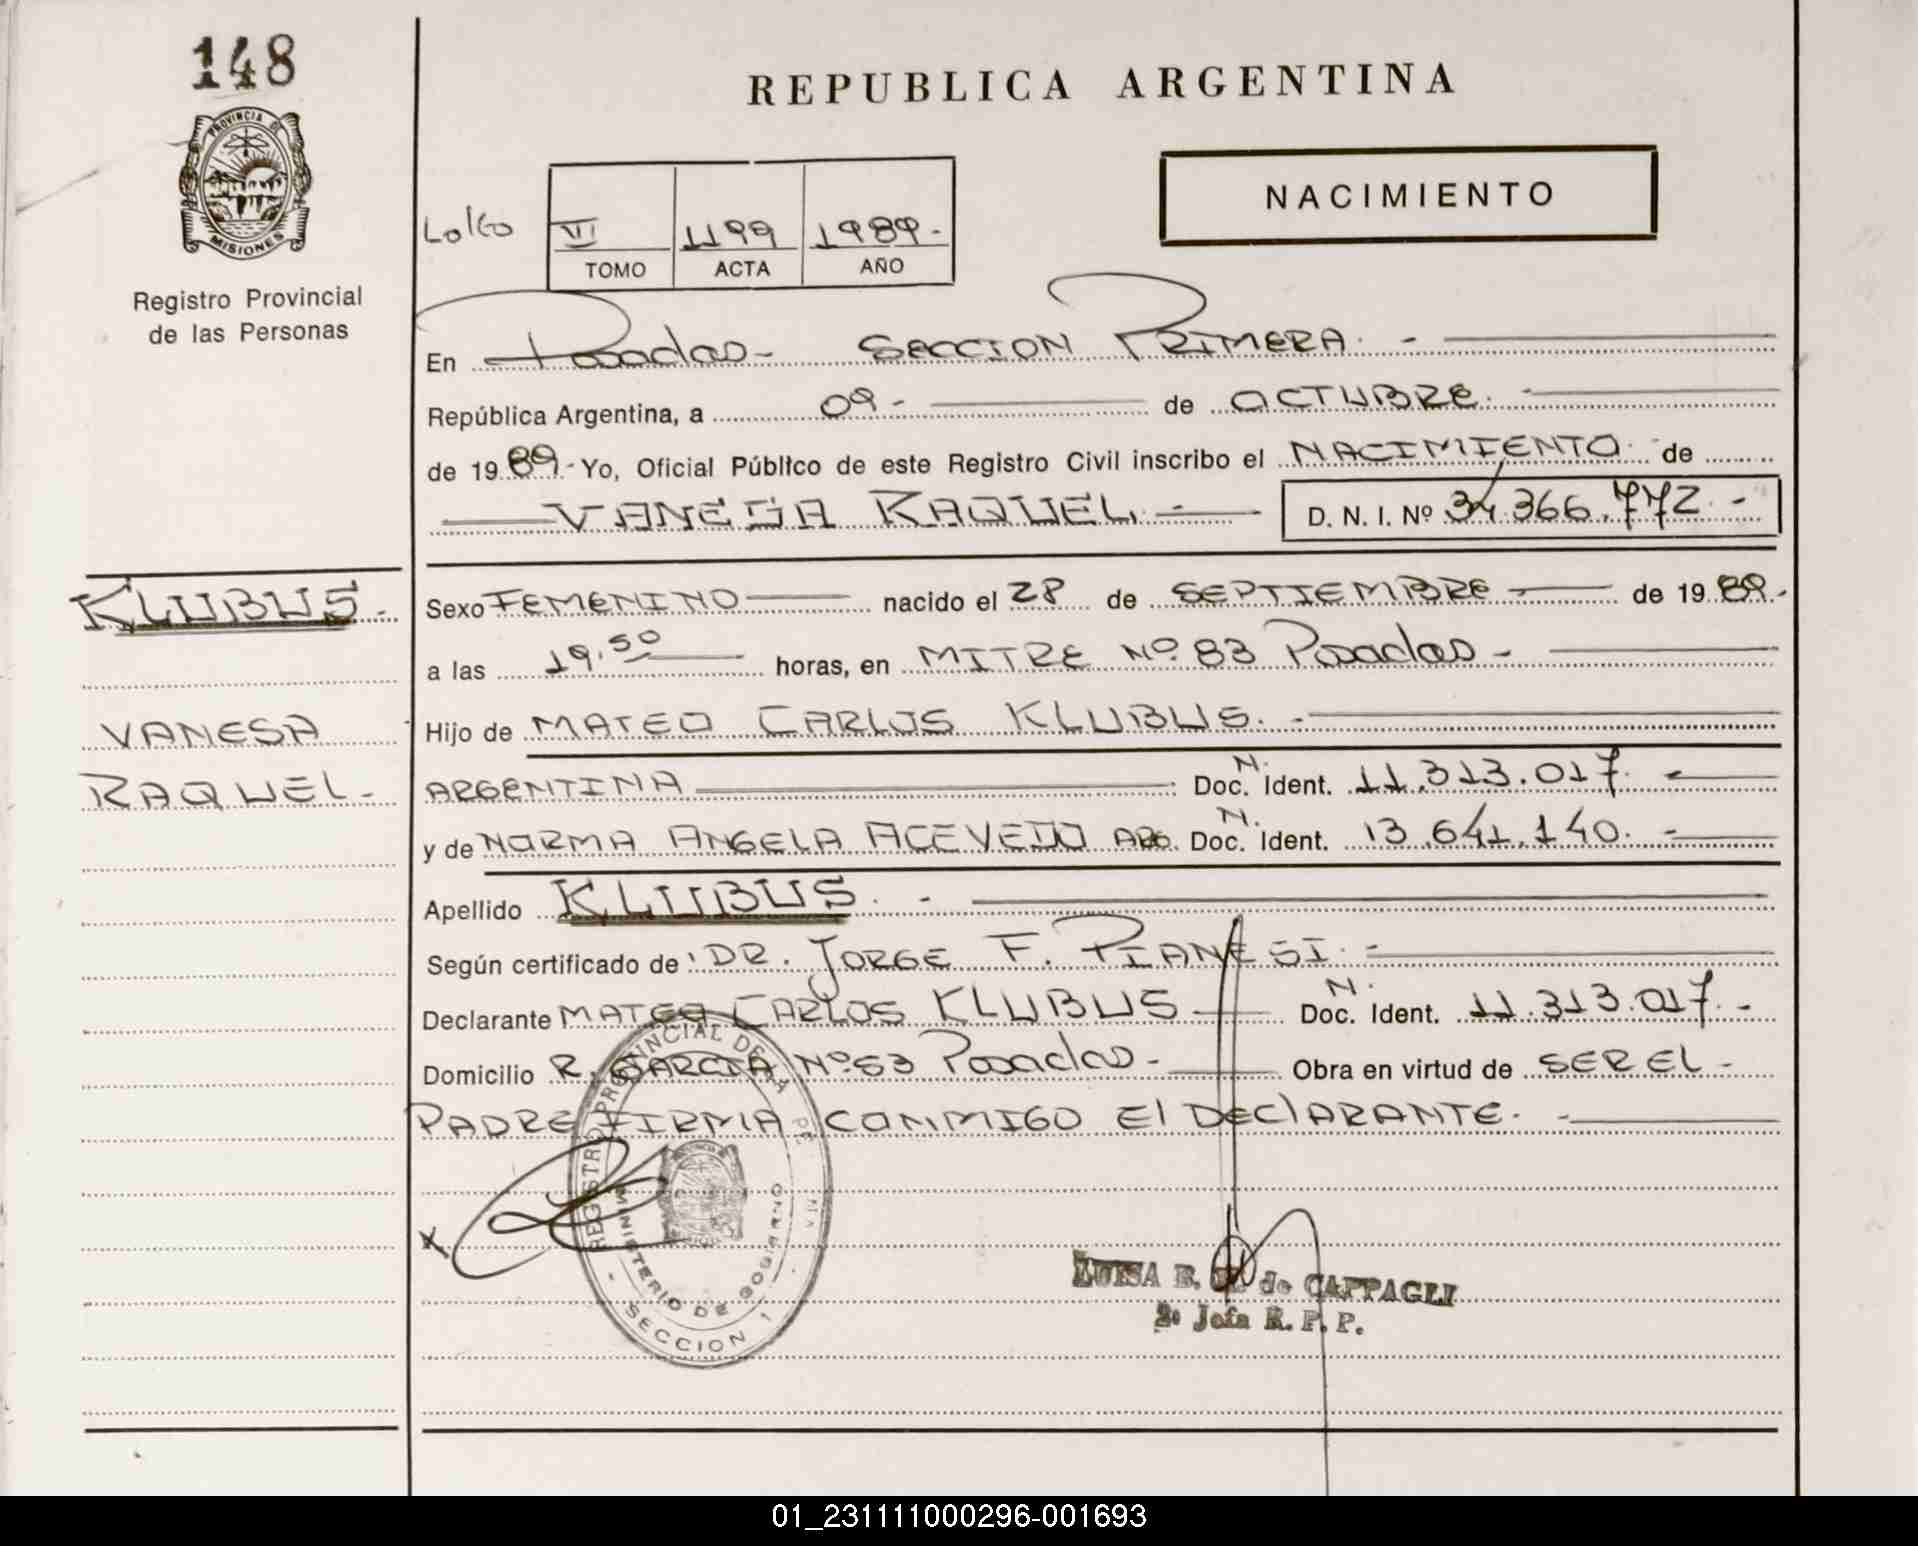 148
PROVINCIA DE
MISIONES
Registro Provincial
de las Personas
REPUBLICA ARGENTINA
NACIMIENTO
VI 1199 1989.-
TOMO ACTA AÑO
En Posadas- SECCION PRIMERA.-
República Argentina, a 09- de OCTUBRE.
de 1989.- Yo, Oficial Público de este Registro Civil inscribo el NACIMIENTO. de
VANESA RAQUEL.- D. N. I. Nº 34.366.772.-
KLUBUS.
VANESA
RAQUEL-
Sexo FEMENINO nacido el 28 de SEPTIEMBRE de 1989.-
a las 19.50 horas, en MITRE Nº 83 Posadas-
Hijo de MATEO CARLOS KLUBUS.-
ARGENTINA Doc. N. Ident. 11.313.017.-
y de NORMA ANGELA ACEVEDO ARG. Doc. N. Ident. 13.641.140.-
Apellido KLUBUS.-
Según certificado de DR. JORGE F. PIANESI.-
Declarante MATEO CARLOS KLUBUS Doc. N. Ident. 11.313.017.-
Domicilio R. GARCIA Nº 53 Posadas- Obra en virtud de SER EL-
PADRE FIRMA CONMIGO El DEClARANTE.-
X
REGISTRO PROVINCIAL DE LA PE
MINISTERIO DE GOBIERNO
- SECCION 1 -
LUISA B. de CAPPAGLI
2º Jefa R. P. P.
01_231111000296-001693